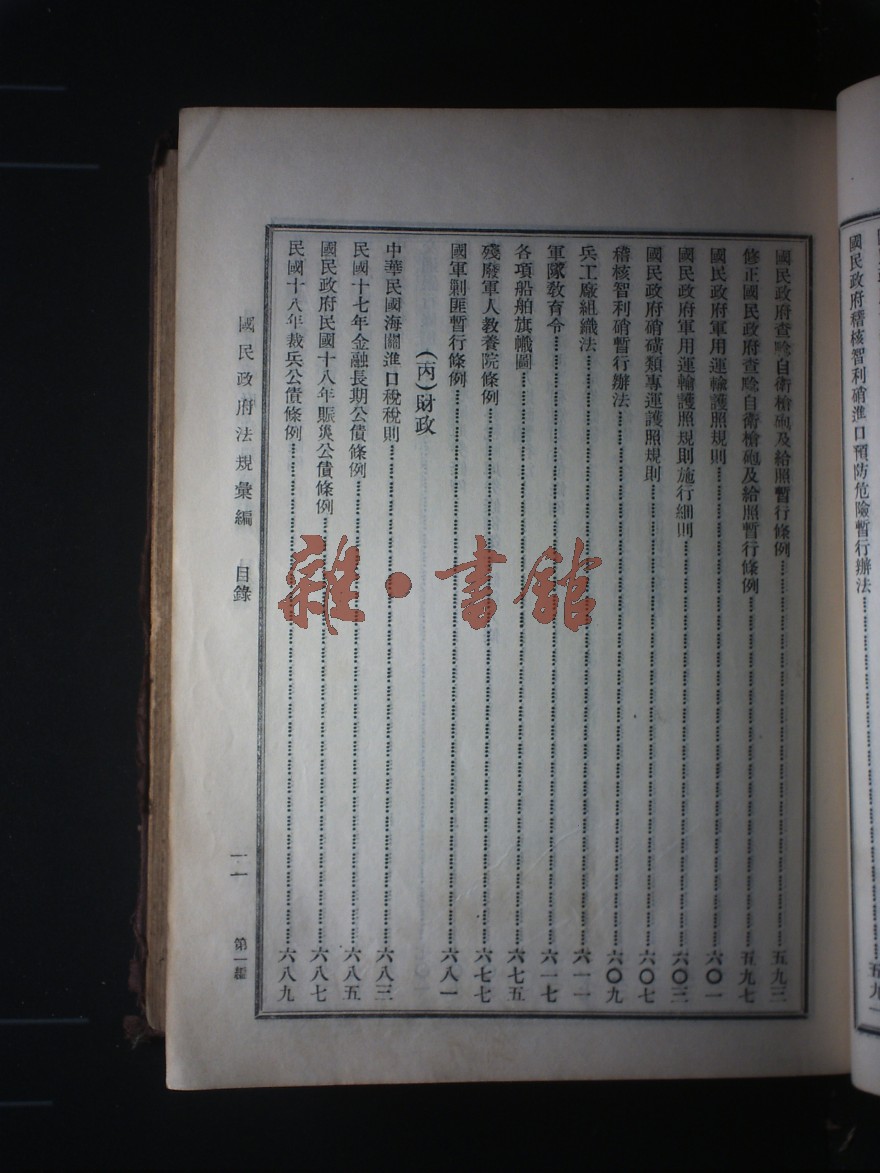 國民政府稽核智利硝進口預防危險暫行辦法……五九一
國民政府查驗自衛槍砲及給照暫行條例……五九三
修正國民政府查驗自衛槍砲及給照暫行條例……五九七
國民政府軍用運輸護照規則……六〇一
國民政府軍用運輸護照規則施行細則……六〇三
國民政府硝磺類專運護照規則……六〇七
稽核智利硝暫行辦法……六〇九
兵工廠組織法……六一一
軍隊教育令……六一七
各項船舶旗幟圖……六七五
殘廢軍人教養院條例……六七七
國軍剿匪暫行條例……六八一
(丙)財政
中華民國海關進口稅稅則……六八三
民國十七年金融長期公債條例……六八五
國民政府民國十八年賑災公債條例……六八七
民國十八年裁兵公債條例……六八九
國民政府法規彙編 目錄 一一 第一編
雜·書館